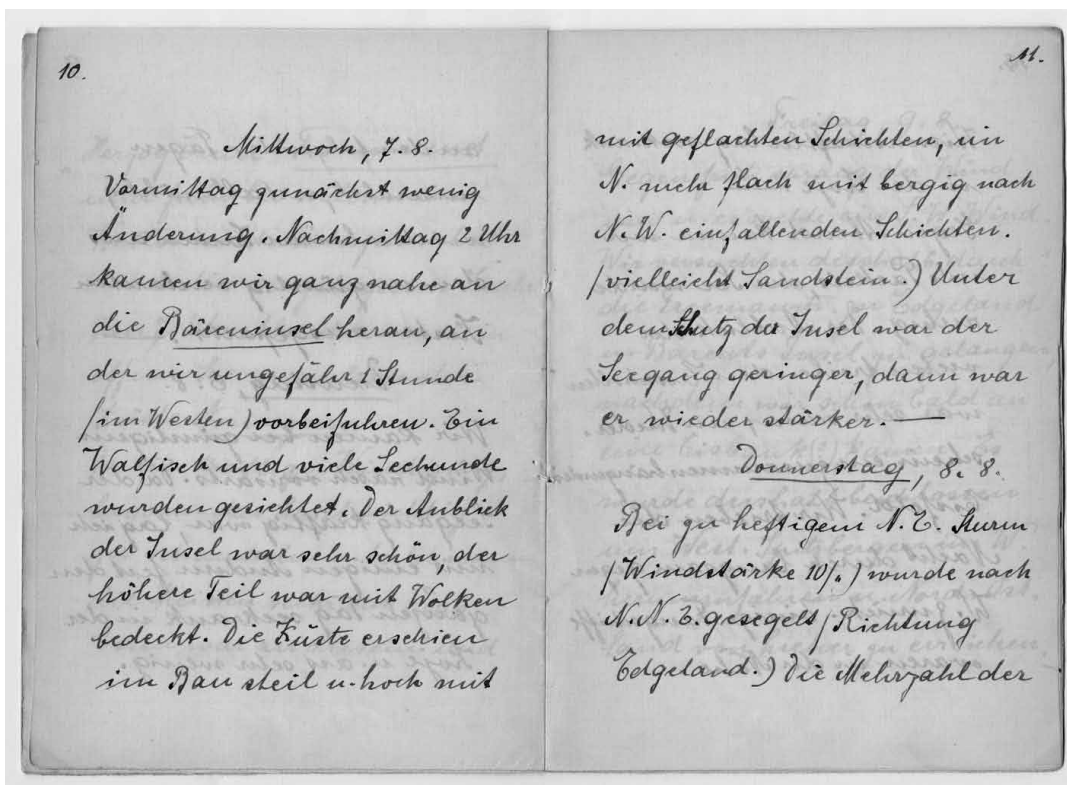 10.
Mittwoch, 7. 8.
Vormittag zunächst wenig
Änderung. Nachmittag 2 Uhr
kamen wir ganz nahe an
die Bäreninsel heran, an
der wir ungefähr 1 Stunde
(im Westen) vorbeifuhren. Ein
Walfisch und viele Seehunde
wurden gesichtet. Der Anblick
der Insel war sehr schön, der
höhere Teil war mit Wolken
bedeckt. Die Küste erschien
im Bau steil u. hoch mit
11.
mit geflachten Schichten, im
N. mehr flach mit bergig nach
N.W. einfallenden Schichten.
(vielleicht Sandstein.) Unter
dem Schutz der Insel war der
Seegang geringer, dann war
er wieder stärker. —
Donnerstag, 8. 8.
Bei zu heftigem N.E. Sturm
(Windstärke 10/.) wurde nach
N.N.E. gesegelt (Richtung
Edgeland.) Die Mehrzahl der